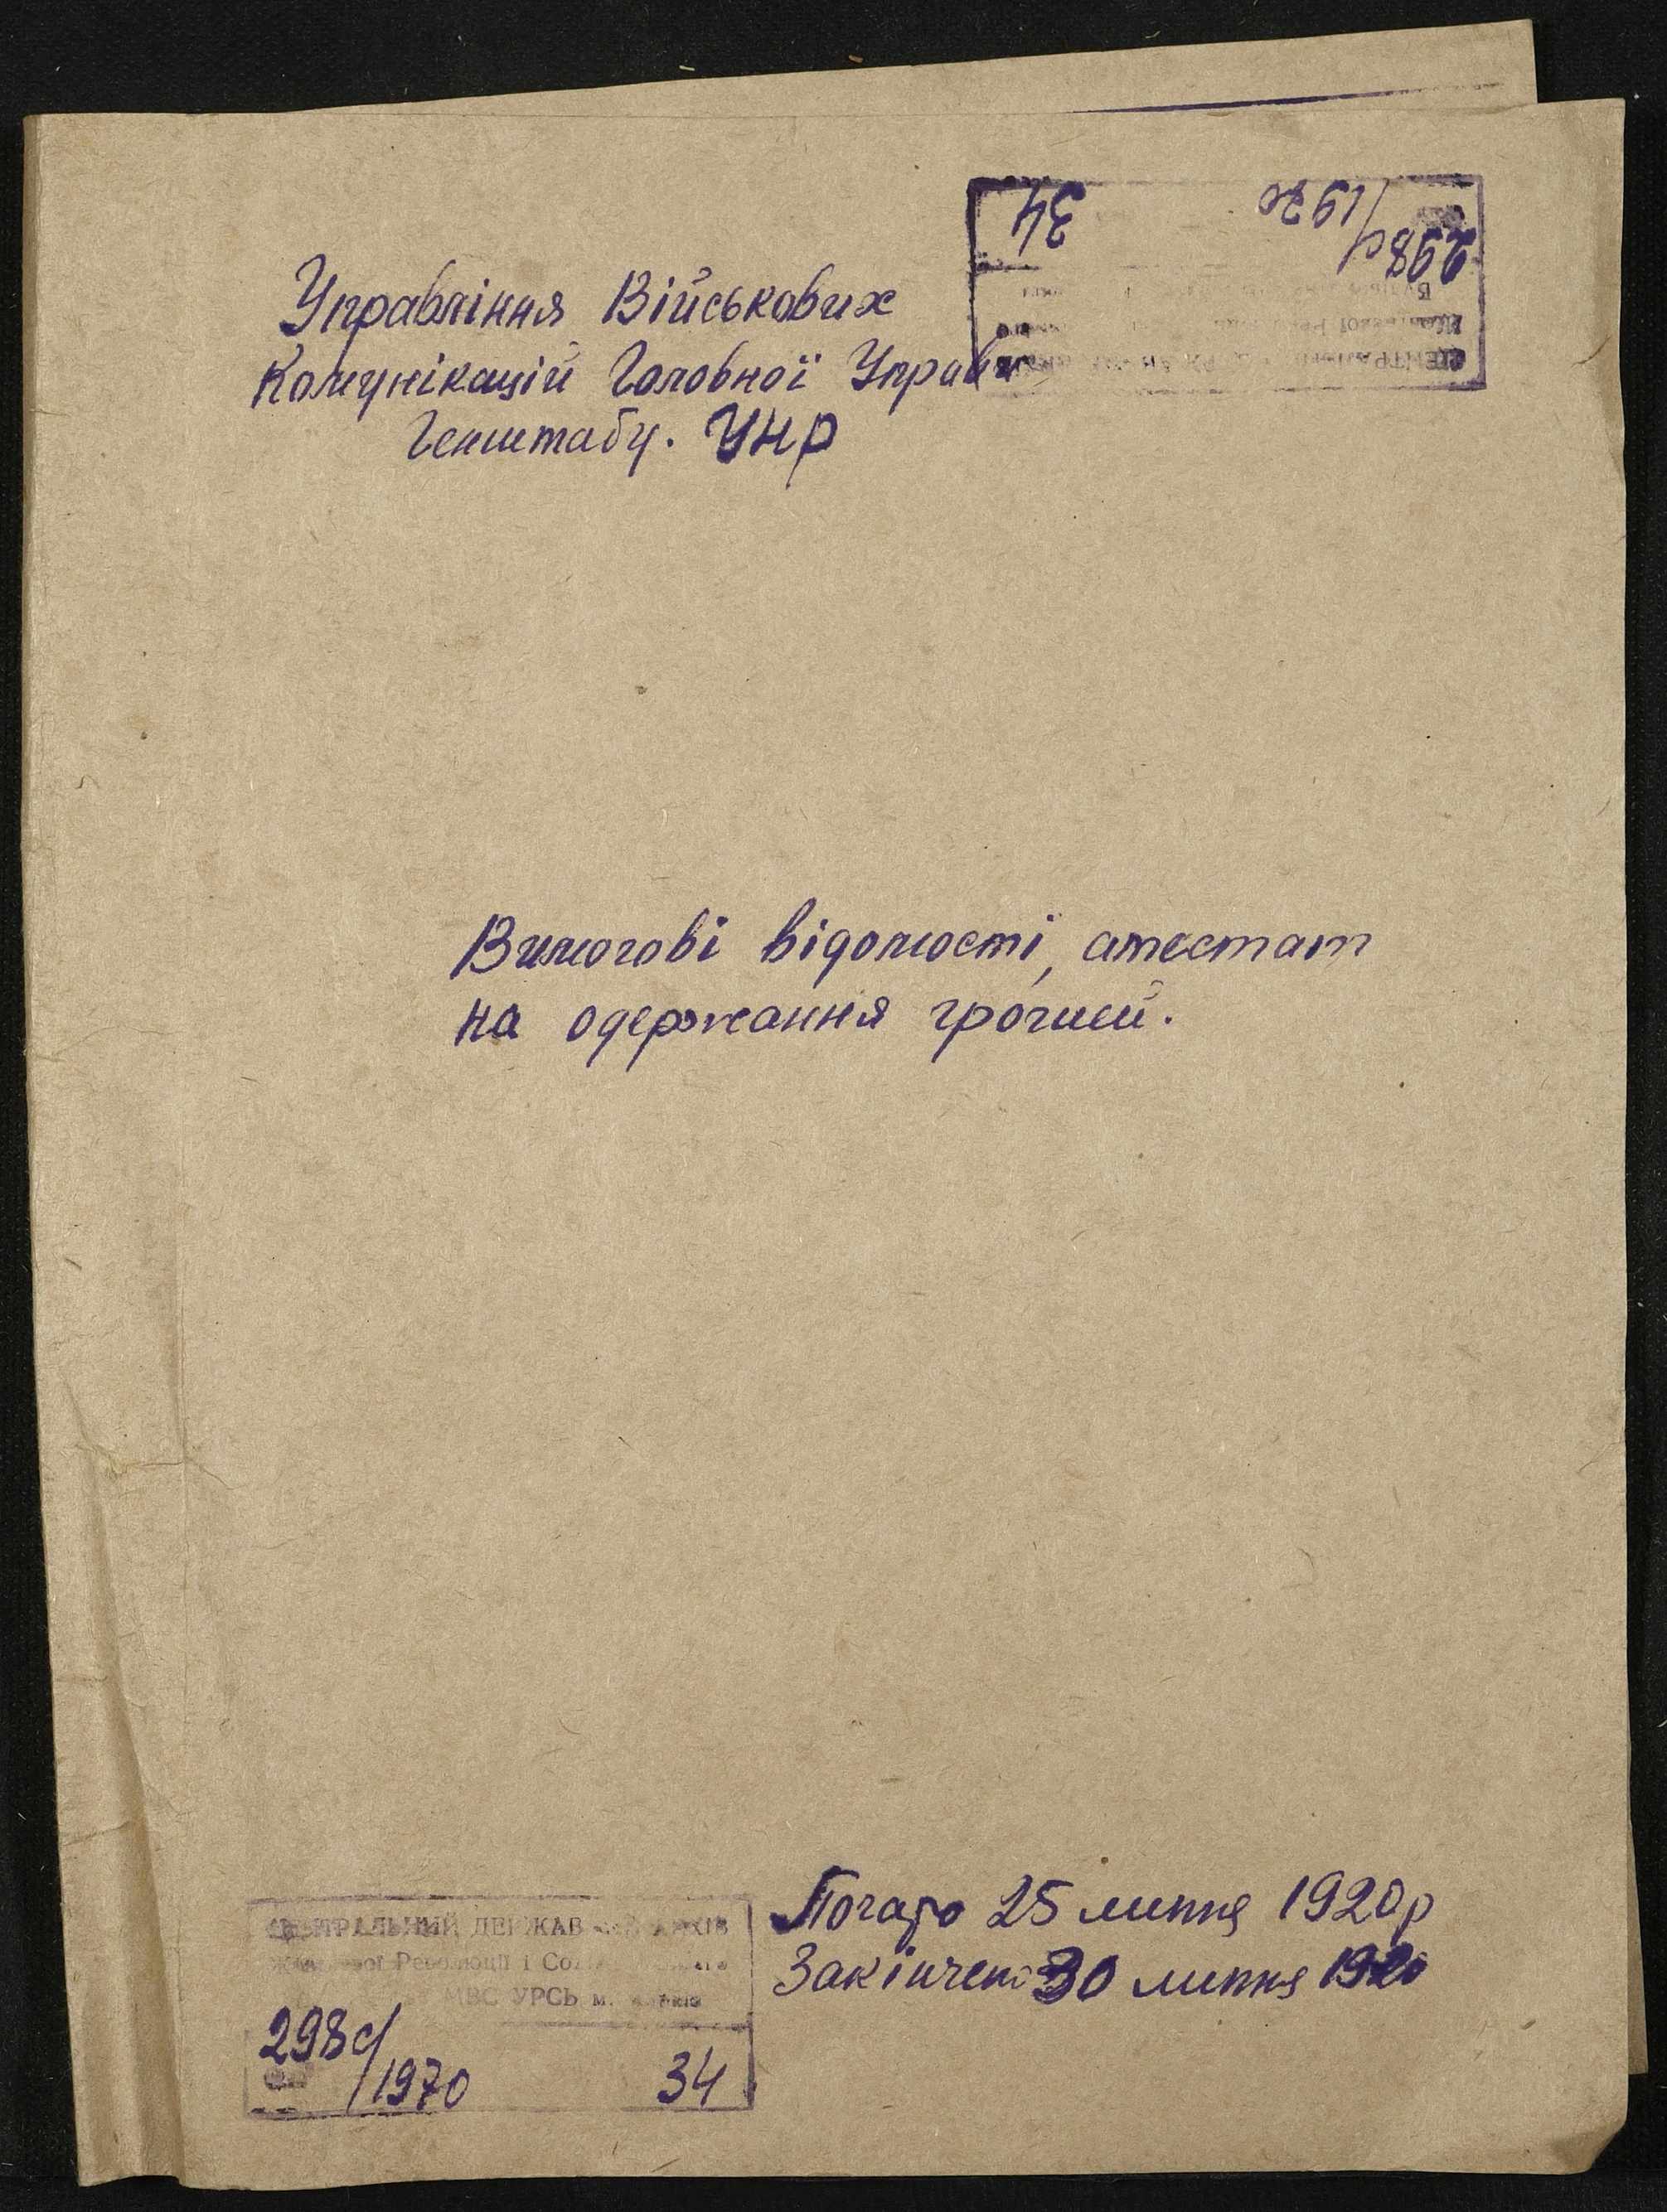 34 1920
298с/
Управління Військових
Комунікацій Головної Управи
Генштабу. УНР
Вимогові відомості, атестат
на одержання грошей.
Почато 25 липня 1920р
Закінчено 30 липня 1920
ЦЕНТРАЛЬНИЙ ДЕРЖАВНИЙ АРХІВ
Революції і
МВС УРСР м.
298с/
1970 34